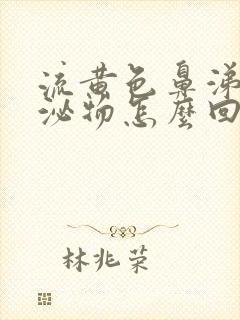 流黄色鼻涕
泌物怎麼回
林兆荣